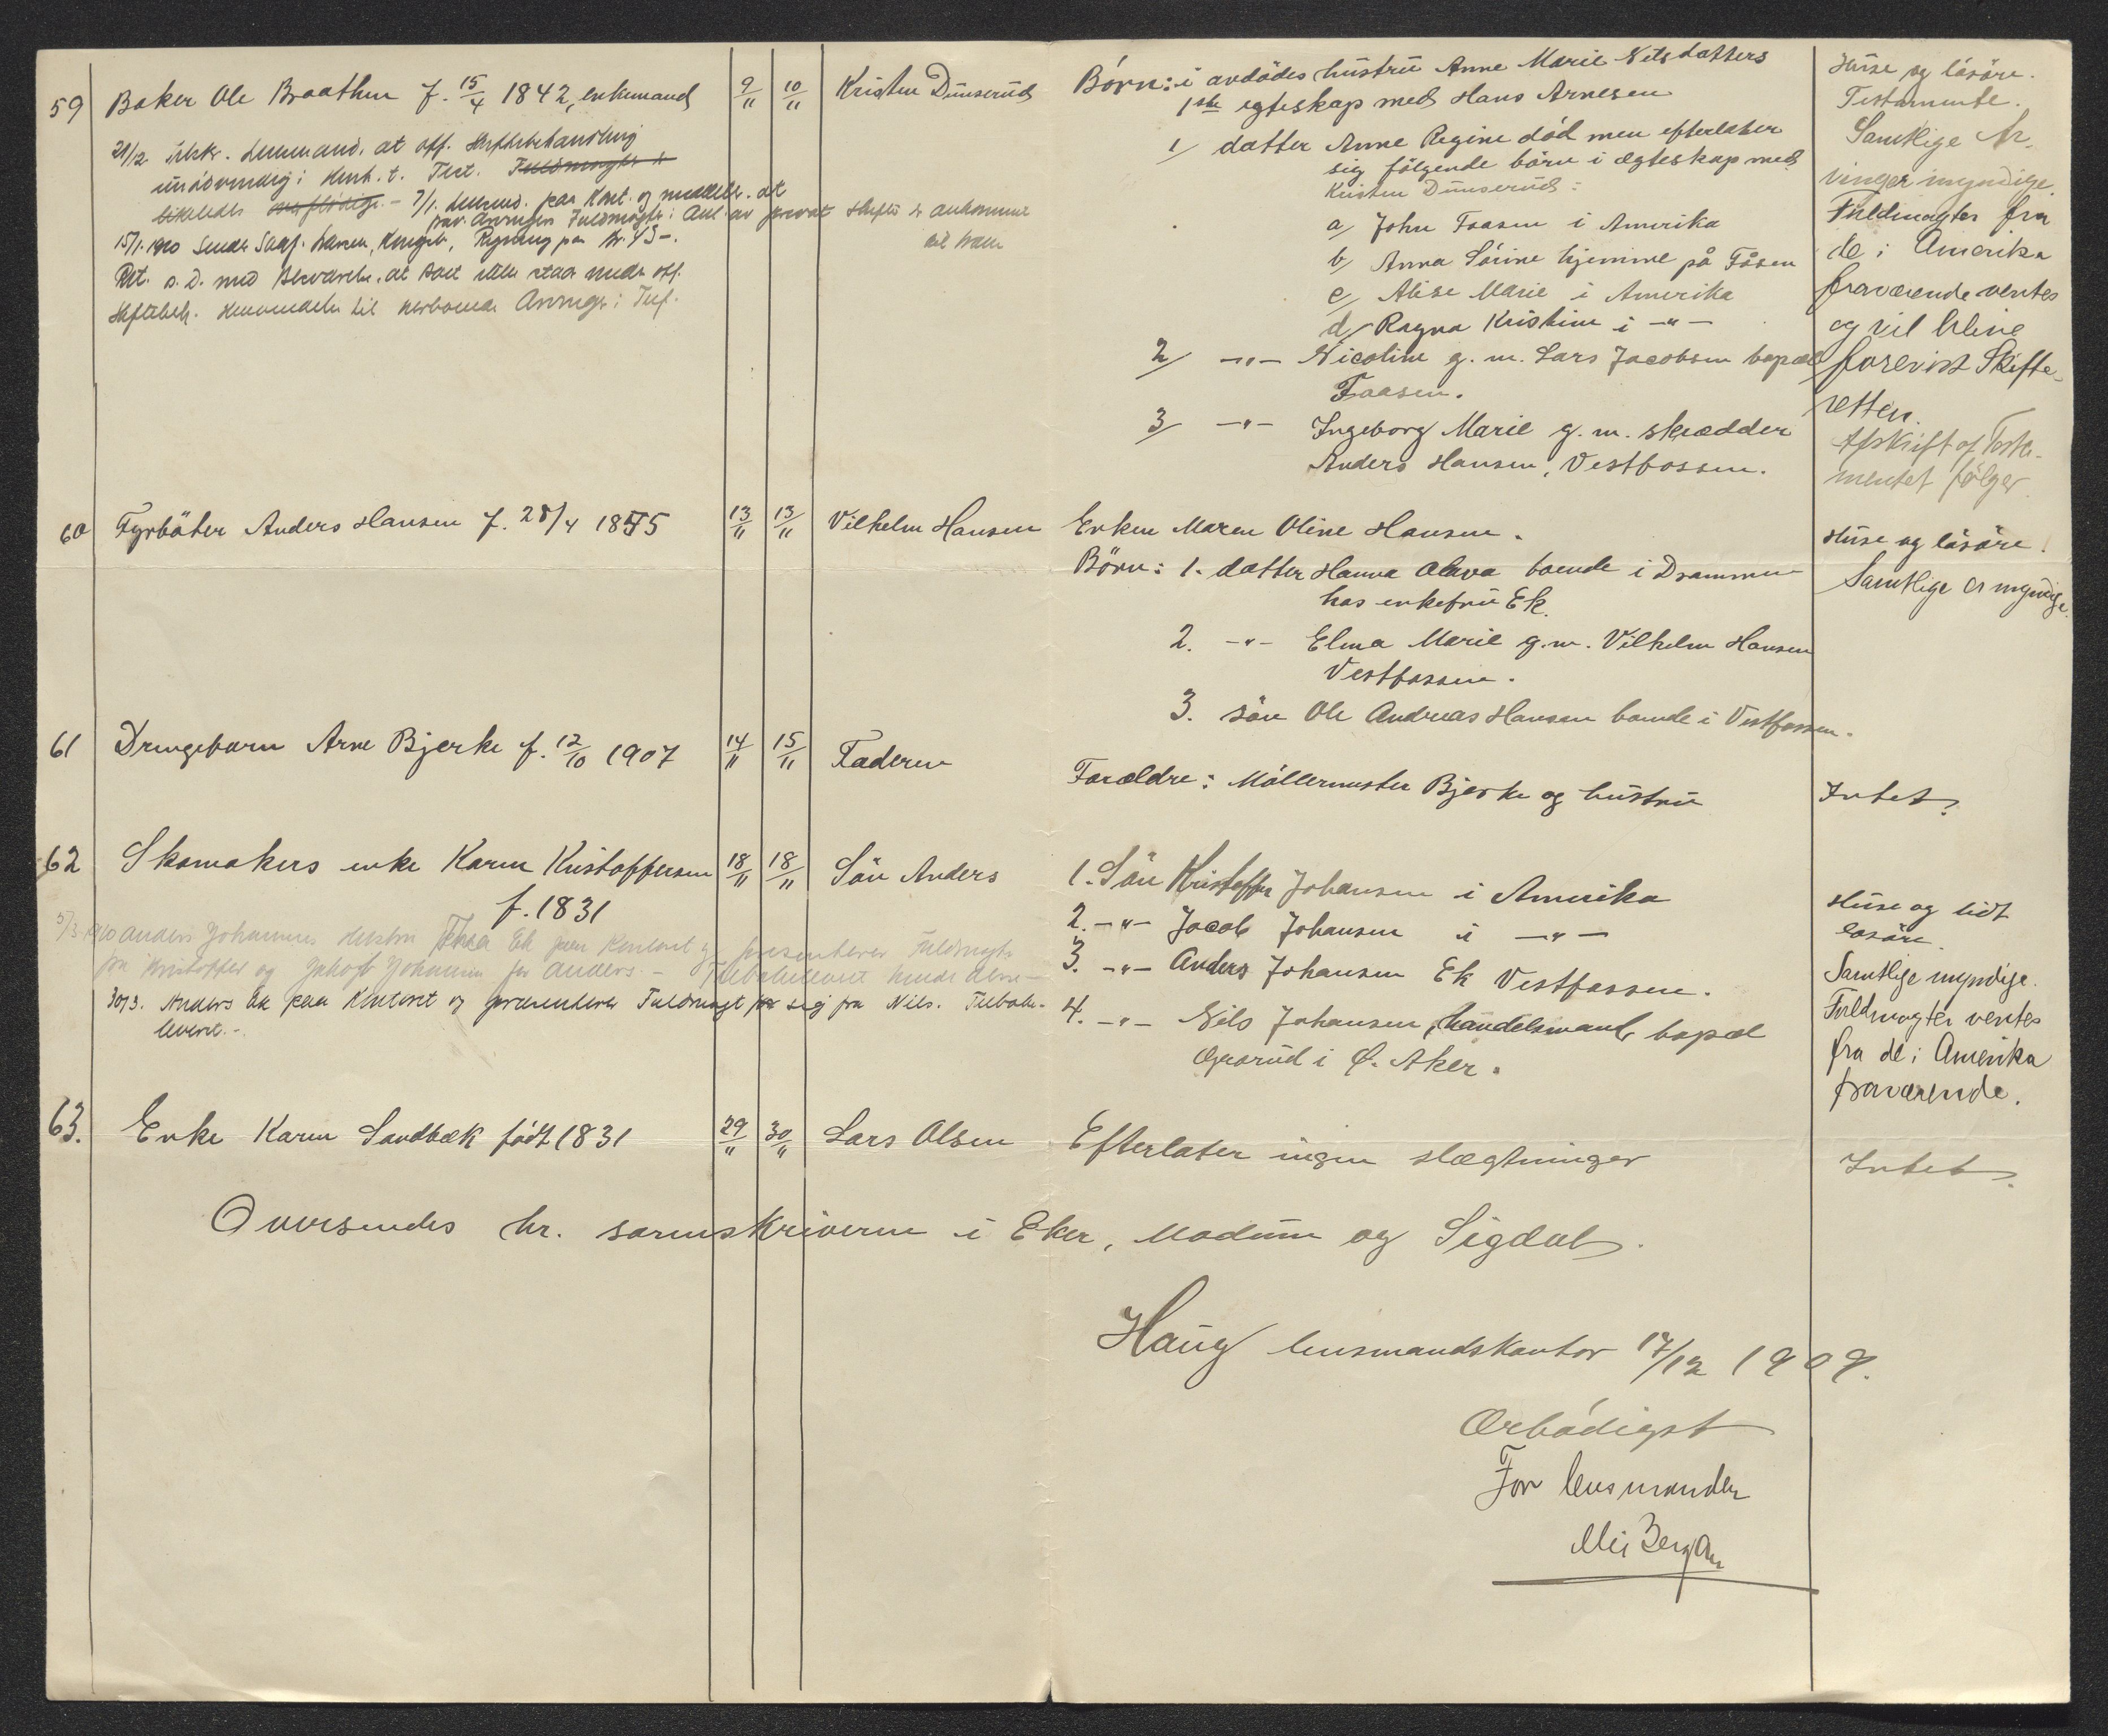 59 Baker Ole Braathen f. 15/4 1842, enkemand 9/11 10/11 Kristen Dunserud
21/12 lensmand. at off. Skiftebehandling
unødvendig i Henh. t. Test. Fuldmagter
likeledes - 7/1. lensmd. paa Kont. og meddeler. at
fuldmagter i Anl. av privat skifte er ankomne
til ham
15/1.1910 Sender Sagf. Larsen, Kongsb., Regning paa Kr. 45-.
Ret. s. D. med Bemærkn. at Boet ikke staar under off.
Skiftebeh. Henvendelse til Arvinger i Tilf.
Børn: i avdødes hustru Anne Marie Nilsdatters
1ste egteskap med Hans Arnesen
1/ datter Anne Regine död men efterlater
sig fölgende börn i ægteskap med
Kristen Dunserud:
a/ John Faasen i Amerika
b/ Anna Sörine hjemme på Fåsen
c/ Alise Marie i Amerika
d/ Ragna Kristine i -"-
2/ -"- Nicoline g. m. Lars Jacobsen bopæl
Faasen.
3/ -"- Ingeborg Marie g. m. skrædder
Anders Hansen, Vestfossen.
Huse og lösöre.
Testamente.
Samtlige Ar-
vinger myndige.
Fuldmagter fra
de i Amerika
fraværende ventes
og vil blive
forevist Skifte-
retten.
Afskrift af Testa-
mentet fölger.
60 Fyrböter Anders Hansen f. 28/4 1855 13/11 13/11 Vilhelm Hansen Enken Maren Oline Hansen.
Börn: 1. datter Hanna Olava boende i Drammen
hos enkefru Ek.
2. -"- Elma Marie g.m. Vilhelm Hansen
Vestfossen.
3. sön Ole Andreas Hansen boende i Vestfossen.
Huse og lösöre.
Samtlige er myndige.
61 Drengebarn Arne Bjerke f. 12/10 1907 14/11 15/11 Faderen
Forældre: Möllermester Bjerke og hustru
Intet.
62 Skomakers enke Karen Kristoffersen 18/11 18/11 Sön Anders
f. 1831
5/3 1910 Anders Johannes Hustru Ek paa Kontoret og presenterer Fuldmagt
fra Kristoffer og Jakob Johansen for Anders. - Tilbakeleveret hende
30/3. Anders Ek paa Kontoret og præsenterer Fuldmagt for sig fra Nils. Tilbake-
leveret.-
1. Sön Kristoffer Johansen i Amerika
2. -"- Jacob Johansen i -"-
3. -"- Anders Johansen Ek Vestfossen.
4. -"- Nils Johansen, handelsmand, bopæl
i Ö. Aker.
Huse og lidt
lösöre.
Samtlige myndige.
Fuldmagter ventes
fra de i Amerika
fraværende.
63. Enke Karen Sandbæk födt 1831 29/11 30/11 Lars Olsen Efterlater ingen slægtninger
Intet.
Oversendes hr. sorenskriveren i Eker, Modum og Sigdal.
Haug lensmandskontor 17/12 1909.
Ærbödigst
For lensmanden